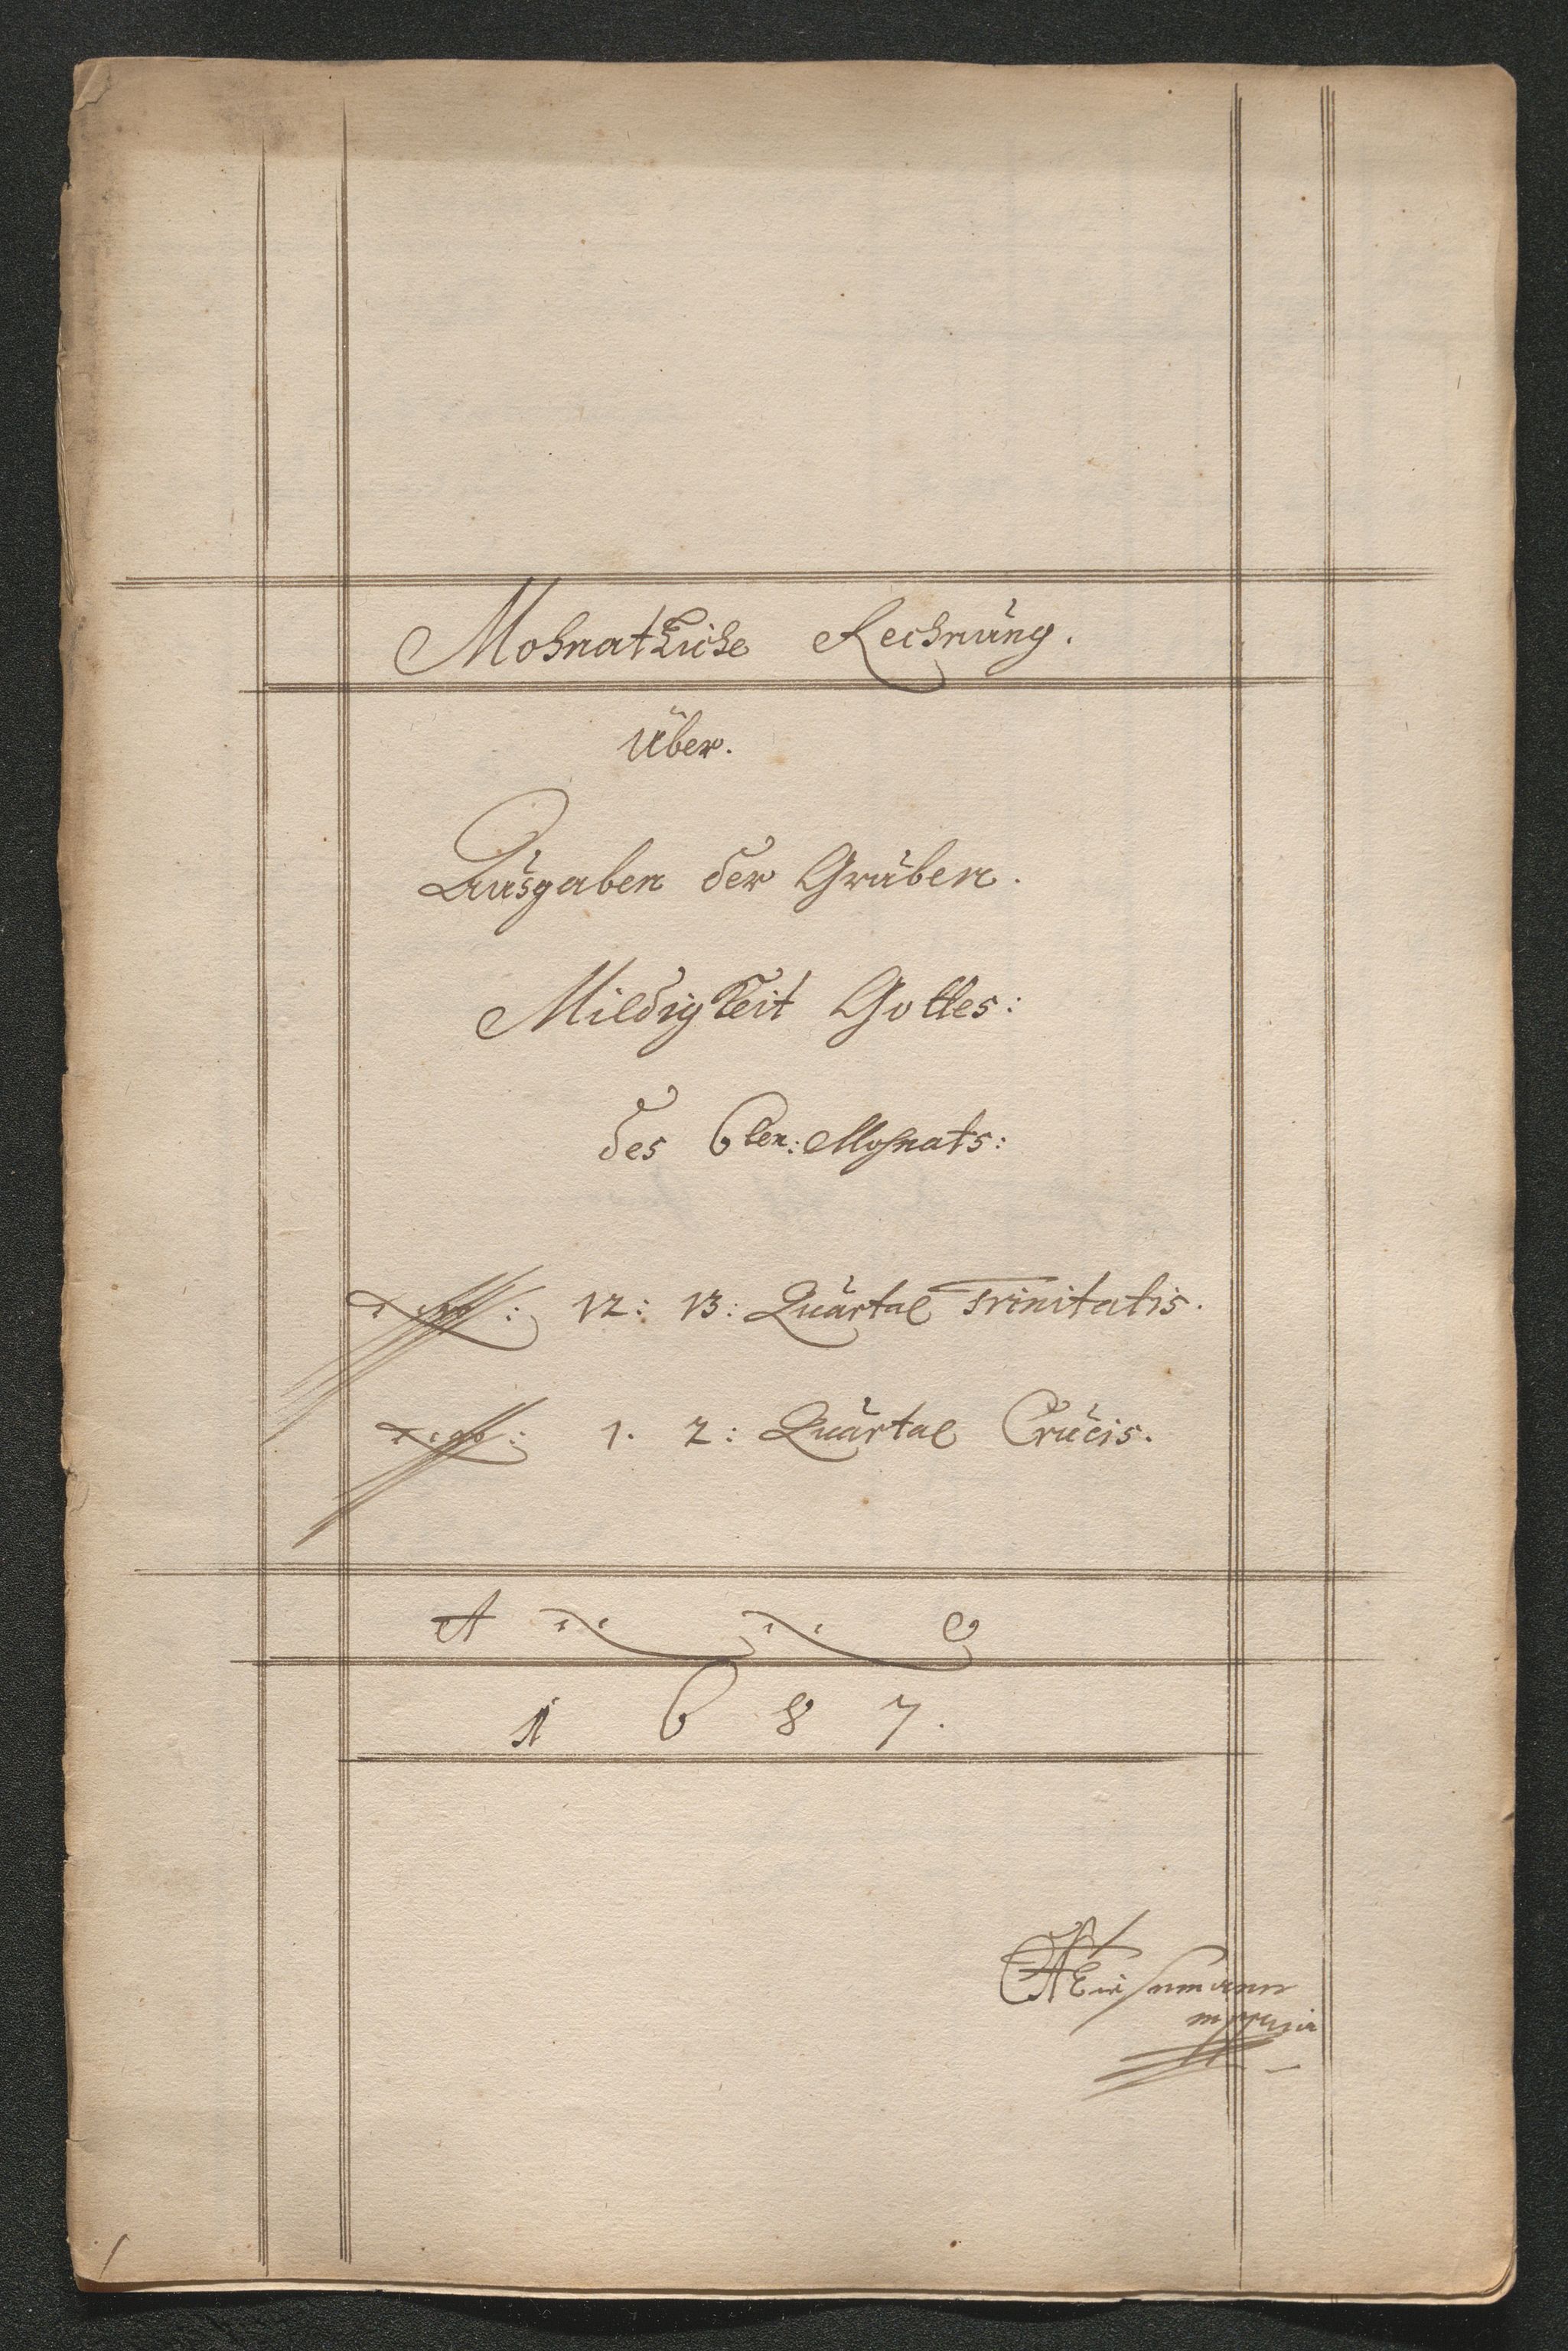 Mohnatliche Rechnung.
Über.
Ausgaben der Gruben.
Mildigkeit Gottes:
des 6ten: Mohnats:
12: 13: Quartal Trinitatis.
1. 2: Quartal Crucis.
A O
1 6 8 7.